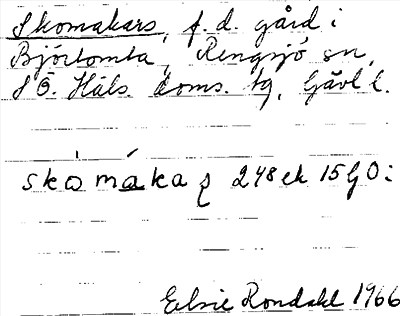 Skomakars, f. d. gård i
Björtomta, Rengsjö sn,
S Ö. Häls. doms. tg, Gävl l.
skòmáka ʂ 248 ek 15 G O:
Elsie Rondahl 1966